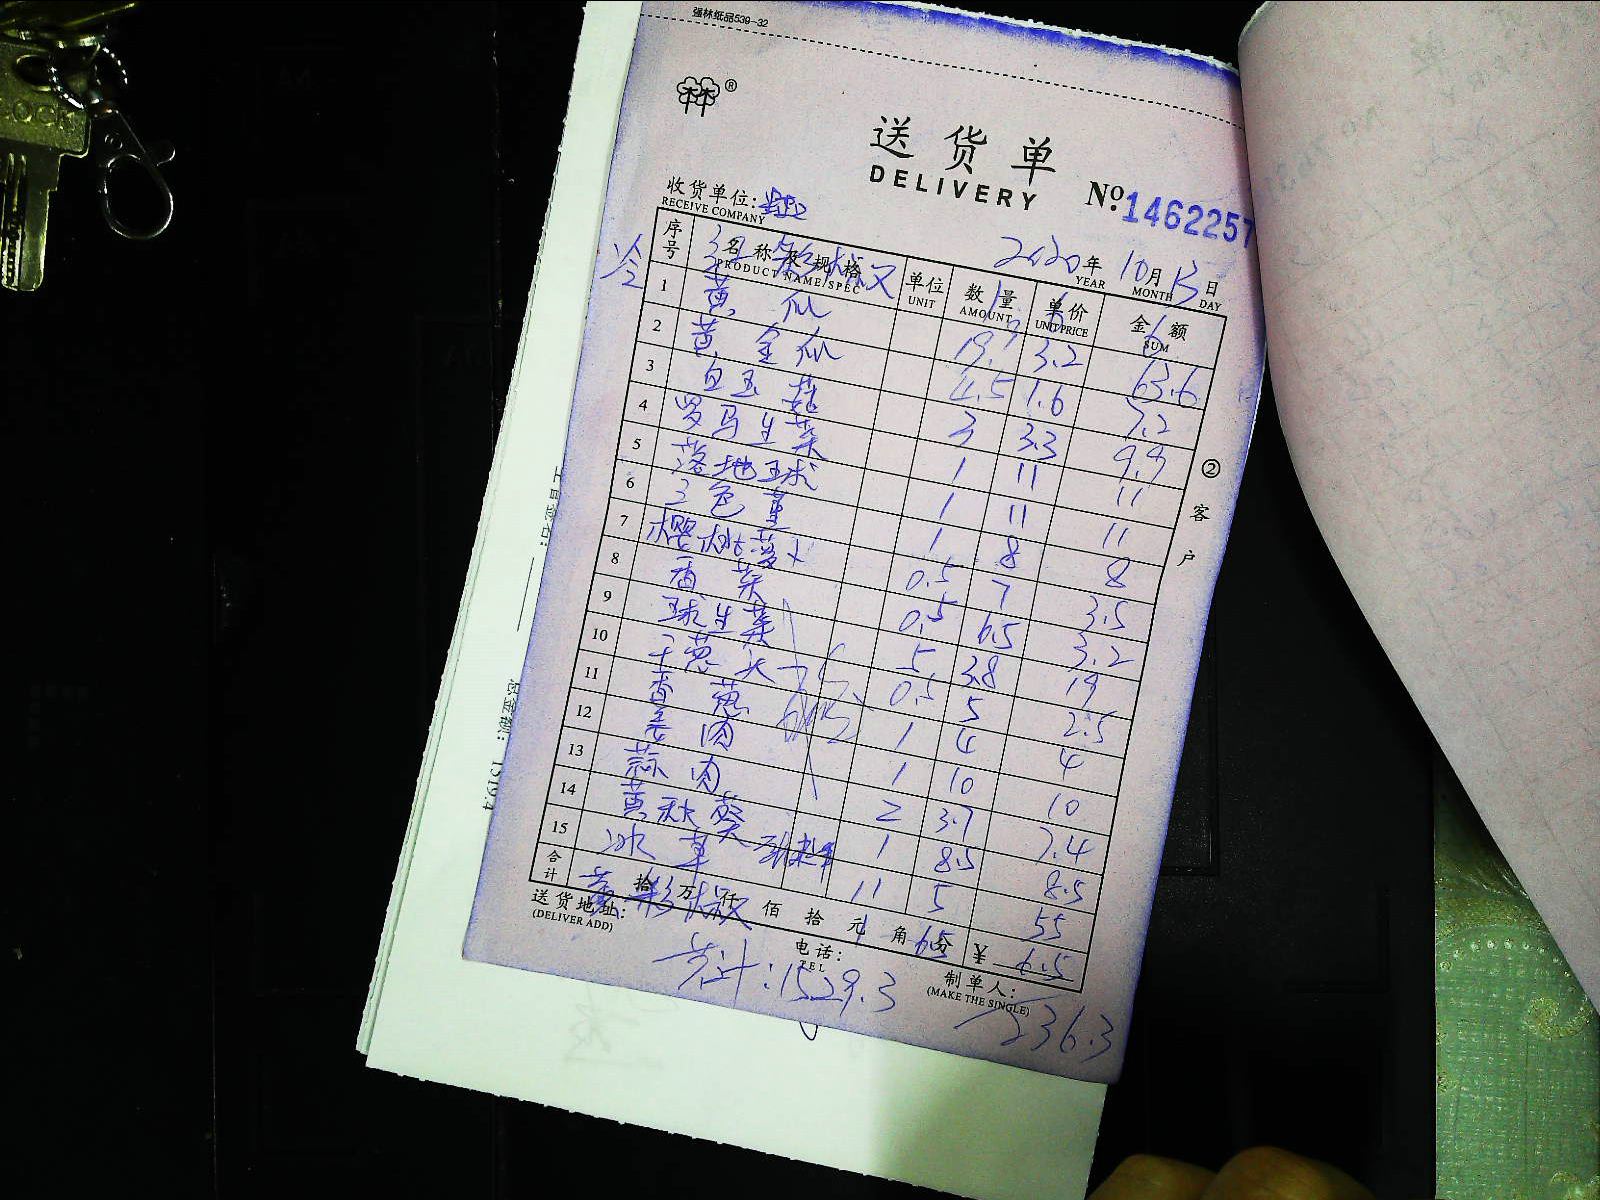 强林纸品539-32
®
送货单
DELIVERY
№ 1462257
收货单位:
RECEIVE COMPANY
2020年 10月 13日
YEAR MONTH DAY
序号 名称及规格 单位 数量 单价 金额
PRODUCT NAME/SPEC UNIT AMOUNT UNIT PRICE SUM
冷
1 黄瓜 19.9 3.2 63.6
2 黄金瓜 4.5 1.6 7.2
3 白玉菇 3 3.3 9.9
4 罗马生菜 1 11 11
5 落地球 1 11 11
6 三色堇 1 8 8
7 樱桃萝卜 0.5 7 3.5
8 香菜 0.5 6.5 3.2
9 球生菜 5 3.8 19
10 干葱头 0.5 5 2.5
11 香葱 1 4 4
12 姜肉 1 10 10
13 蒜肉 2 3.7 7.4
14 黄秋葵 1 8.5 8.5
15 冰草 11 5 55
合计 拾 万 仟 佰 拾 元 角 分 ¥ 6.5
黄彩椒 1 6.5
② 客户
送货地址:
(DELIVER ADD)
电话:
TEL
制单人:
(MAKE THE SINGLE)
共计:1529.3
236.3
总金额: 1519.4